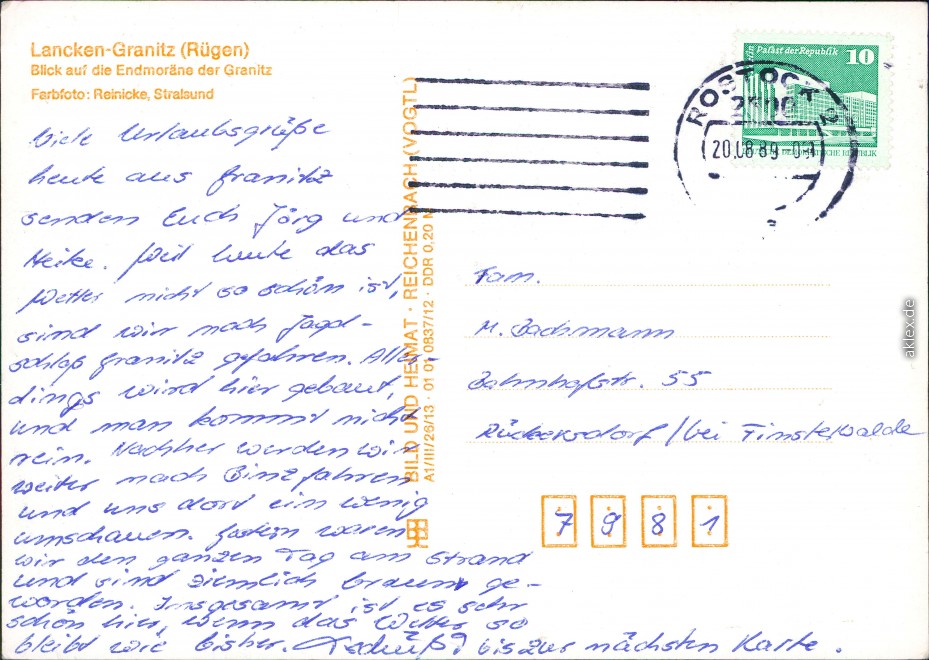 Lancken-Granitz (Rügen)
Blick auf die Endmoräne der Granitz
Farbfoto: Reinicke, Stralsund
Viele Urlaubsgrüße
heute aus Granitz
senden Euch Jörg und
Heike. Weil heute das
Wetter nicht so schön ist,
sind wir nach Jagd-
schloß Granitz gefahren. Aller-
dings wird hier gebaut,
und man kommt nicht
rein. Nachher werden wir
weiter nach Binz fahren
und uns dort ein wenig
umschauen. Gestern waren
wir den ganzen Tag am Strand
und sind ziemlich braun ge-
worden. Insgesamt ist es sehr
schön hier, wenn das Wetter so
bleibt wie bisher. Tschüß, bis zur nächsten Karte.
BILD UND HEIMAT · REICHENBACH (VOGTL)
A1/III/26/13 · 01 01 0837/12 · DDR 0,20 M
Palast der Republik
10
DEMOKRATISCHE REPUBLIK
ROSTOCK 2
2500
20.08.89
Fam.
M. Bachmann
Bahnhofstr. 55
Rückersdorf / bei Finsterwalde
7981
aklex.de